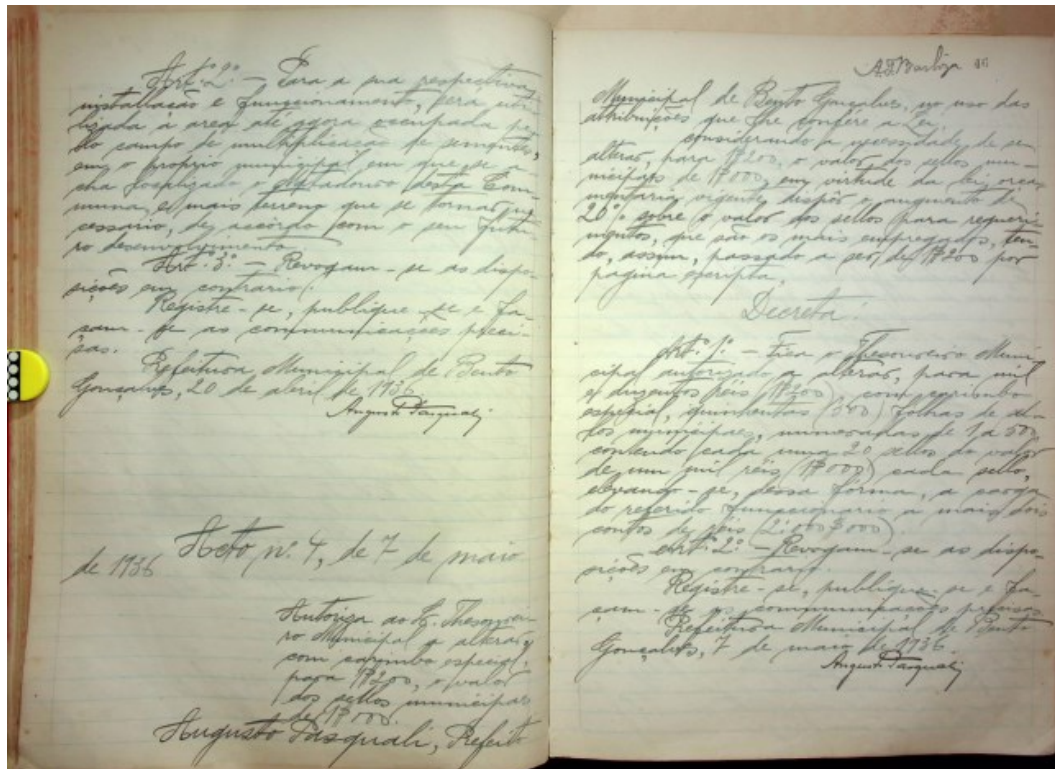 Art.º 2.º - Para a sua respectiva
installação e funccionamento, será uti-
lizada a area até agora occupada pe-
lo campo de multiplicação de sementes,
em o proprio municipal em que se a-
cha localizado o Matadouro desta Com-
muna, e mais terreno que se tornar ne-
cessario, de accôrdo com o seu futu-
ro desenvolvimento.
Art.º 3.º - Revogam-se as dispo-
sições em contrario.
Registre-se, publique-se e fa-
çam-se as communicações preci-
sas.
Prefeitura Municipal de Bento
Gonçalves, 20 de abril de 1936.
Augusto Pasquali
Acto n.º 4, de 7 de maio
de 1936
Autoriza ao Sr. Thesourei-
ro Municipal a alterar,
com carimbo especial,
para 1$200, o valor
dos sellos municipaes
de 1$000.
Augusto Pasquali, Prefeito
A.D.Barbosa 46
Municipal de Bento Gonçalves, no uso das
attribuições que lhe confere a Lei,
considerando a necessidade de se
alterar, para 1$200, o valor dos sellos mu-
nicipaes de 1$000, em virtude da lei orça-
mentaria vigente dispôr o augmento de
20% sobre o valor dos sellos para requeri-
mentos, que são os mais empregados, ten-
do, assim, passado a ser, de 1$200 por
pagina escripta,
Decreta:
Art.º 1.º - Fica o Thesoureiro Muni-
cipal autorizado a alterar, para mil
e duzentos réis (1$200) com carimbo
especial, quinhentas (500) folhas de sel-
los municipaes, numeradas de 1 a 500
contendo cada uma 20 sellos do valor
de um mil réis (1$000) cada sello,
elevando-se, dessa fórma, a carga
do referido funccionario a mais dois
contos de réis (2:000$000).
Art.º 2.º - Revogam-se as dispo-
sições em contrario.
Registre-se, publique-se e fa-
çam-se as communicações precisas
Prefeitura Municipal de Bento
Gonçalves, 7 de maio de 1936.
Augusto Pasquali